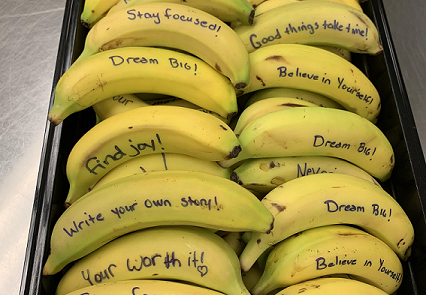 Stay focused!
Dream Big!
Your
Find joy!
Write your own story!
Your Worth it!
Good things take time!
Believe in Yourself!
Dream Big!
Never
Dream Big!
Believe in Yourself!